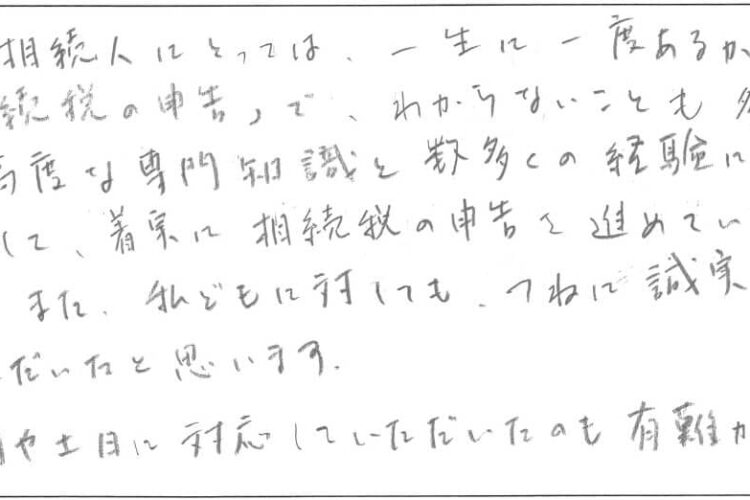 相続人にとっては、一生に一度あるか
続税の申告」で、わからないことも多
高度な専門知識と数多くの経験に
して、着実に相続税の申告を進めてい
また、私どもに対しても、つねに誠実
だいたと思います.
や土日に対応していただいたのも有難か